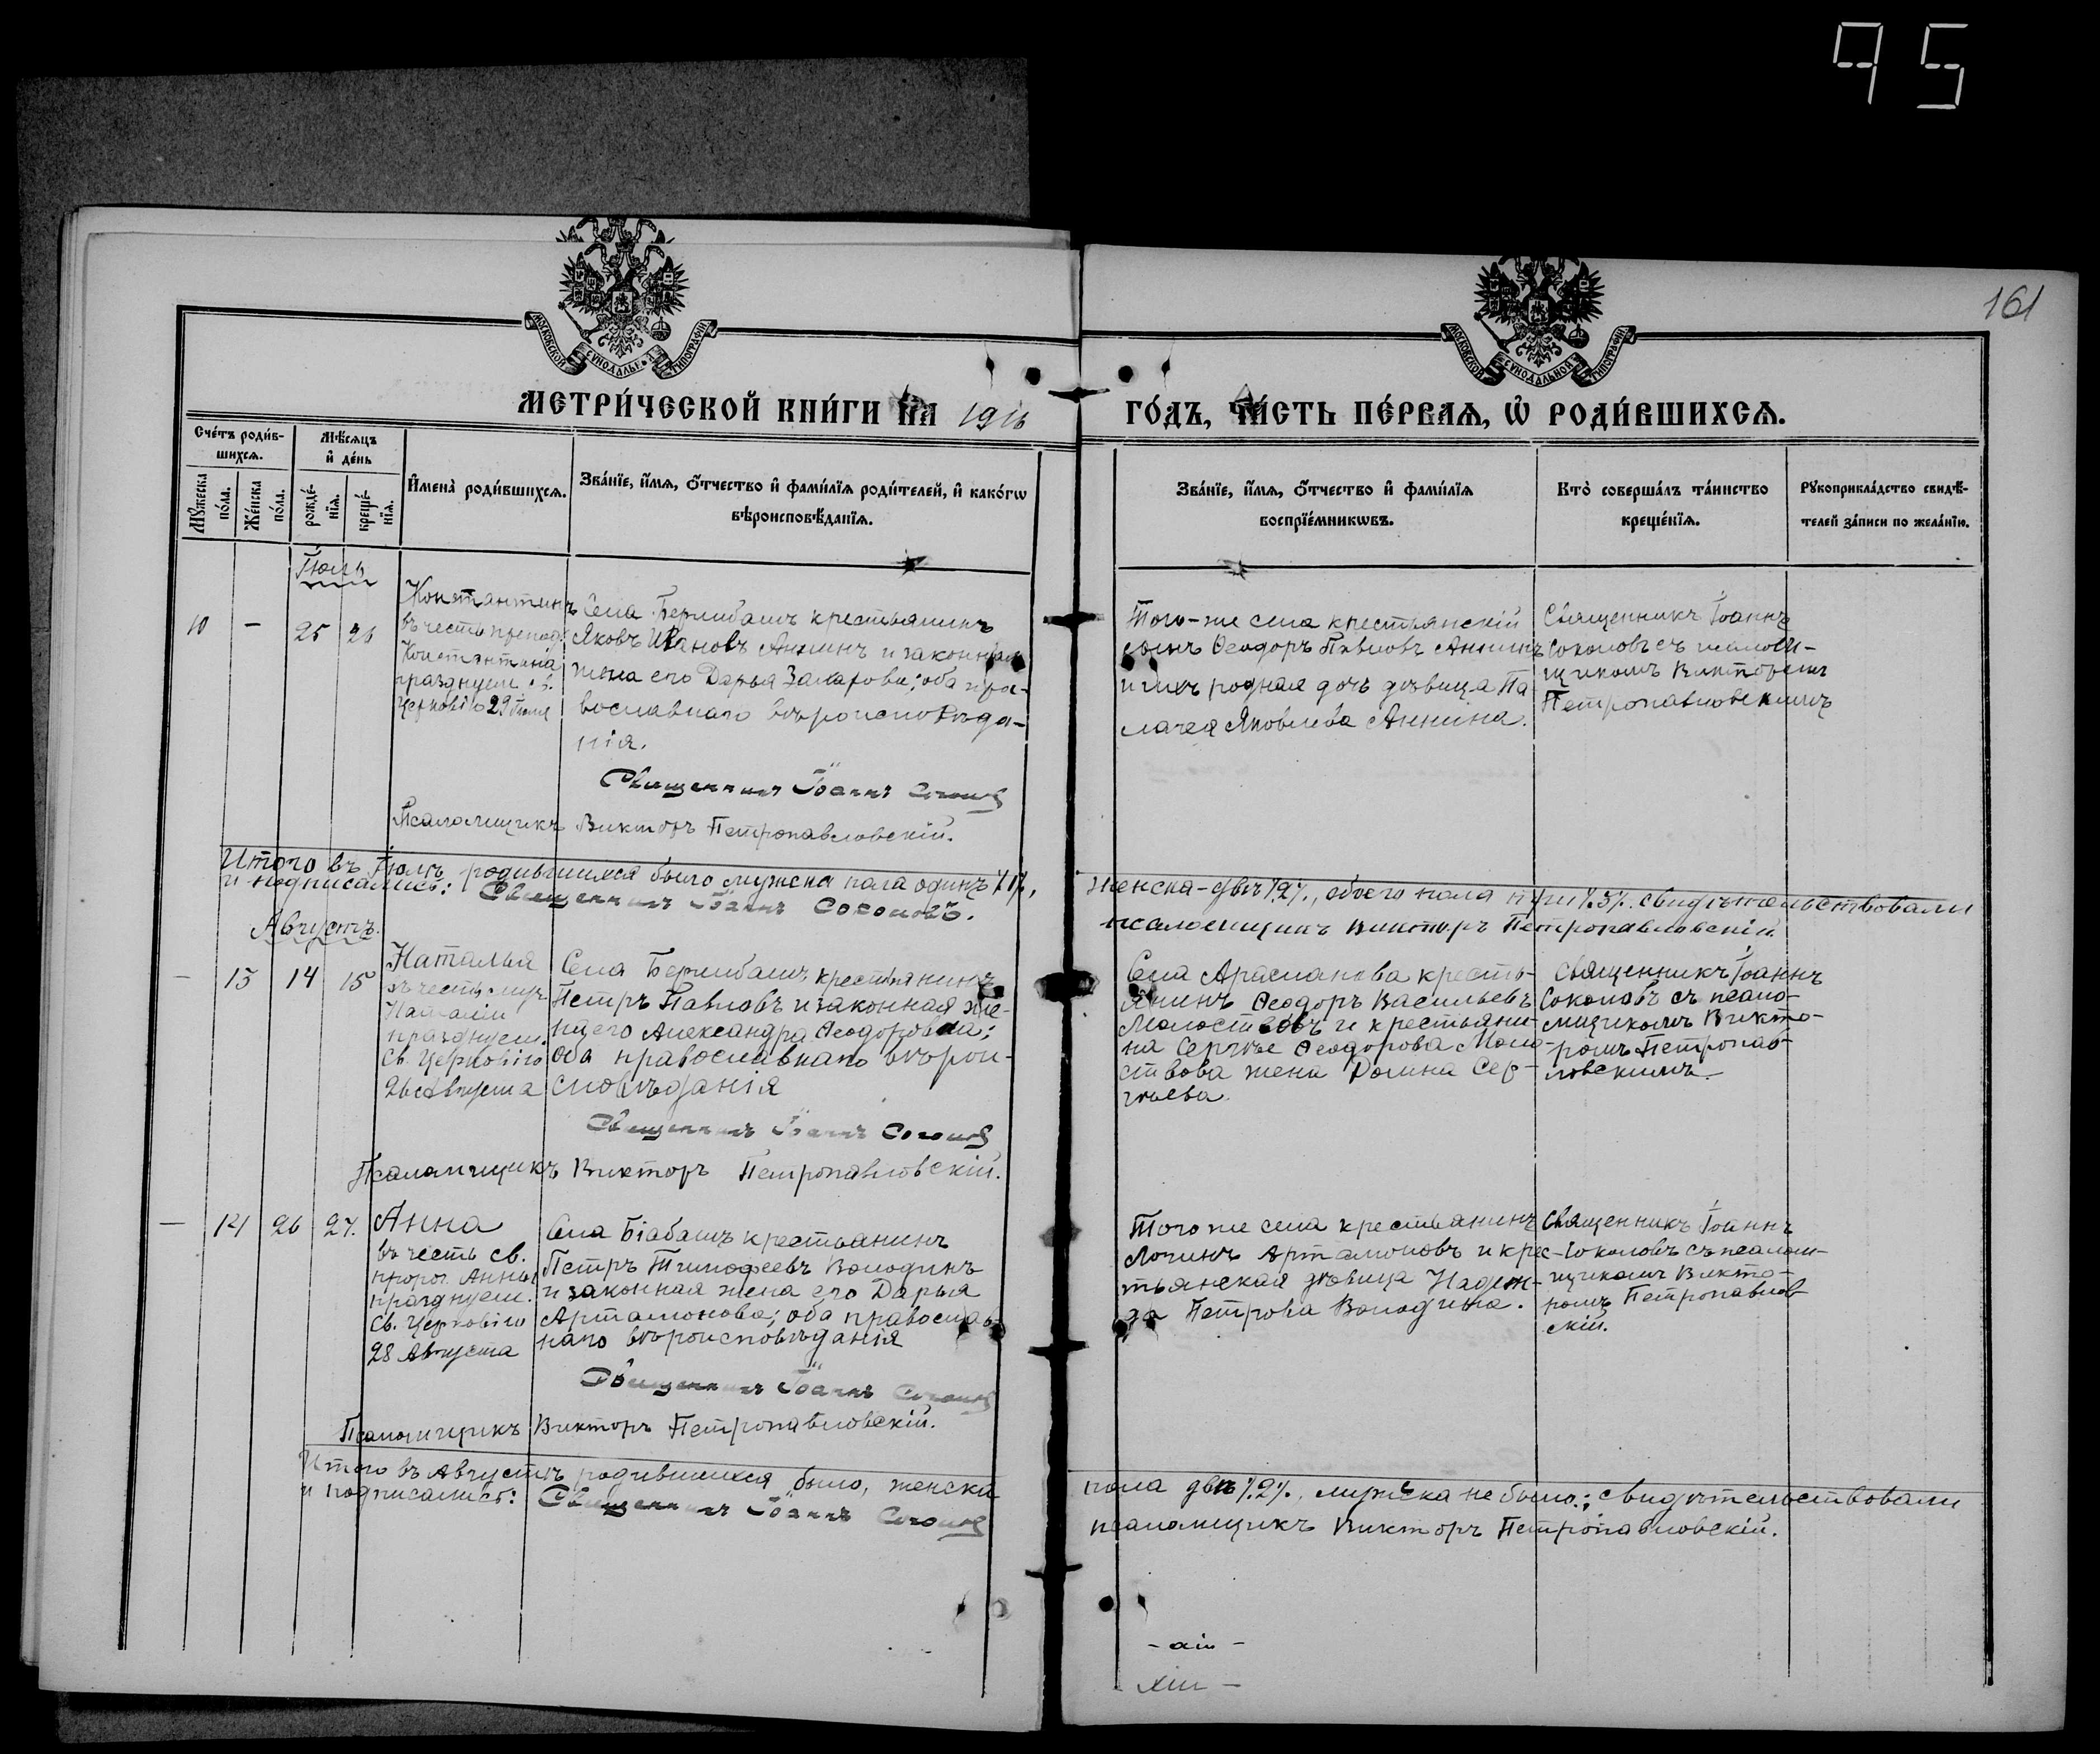 95
161
МОСКОВСКОЙ СѴНОДАЛЬНОЙ ТИПОГРАФІИ
МОСКОВСКОЙ СѴНОДАЛЬНОЙ ТИПОГРАФІИ
МЕТРИ́ЧЕСКОЙ КНИ́ГИ НА 1916
ГО́ДЪ, ЧА́СТЬ ПЕ́РВАѦ, Ѡ҆ РОДИ́ВШИХСѦ.
Сче́тъ роди́в-
шихсѧ.
Мꙋжеска по́ла.
Же́нска по́ла.
Мѣ́сѧцъ
и҆ де́нь
рожде́-
нїѧ.
креще́-
нїѧ.
И҆мена̀ роди́вшихсѧ.
Зва́нїе, и҆́мѧ, ѻ҆́тчество и҆ фами́лїѧ роди́телей, и҆ како́гѡ
вѣроисповѣ́данїѧ.
Зва́нїе, и҆́мѧ, ѻ҆́тчество и҆ фами́лїѧ
воспрїе́мникѡвъ.
Кто̀ соверша́лъ та́инство
креще́нїѧ.
Рꙋкоприкла́дство свидѣ́-
телей за́писи по жела́нїю.
Іюль
10 - 25 26
Константинъ
въ честь препод.
Константина
празднуем. св.
Церковію 29 Іюля
Села Берлибашъ крестьянинъ
Яковъ Ивановъ Аннинъ и законная
жена его Дарья Захарова; оба пра-
вославнаго вѣроисповѣда-
нія.
Священникъ Іоаннъ Соколовъ
Псаломщикъ Викторъ Петропавловскій.
Того-же села крестьянскій
сынъ Ѳеодоръ Павловъ Аннинъ
и ихъ родная дочь дѣвица Па
лагея Яковлева Аннина.
Священникъ Іоаннъ
Соколовъ съ псалом-
щикомъ Викторомъ
Петропавловскимъ
Итого въ Іюлѣ родившихся было мужска пола одинъ /1/,
женска - двѣ /2/, обоего пола три /3/. свидѣтельствовали
и подписались: Священникъ Іоаннъ Соколовъ.
псаломщикъ Викторъ Петропавловскій
Августъ.
- 13 14 15
Наталья
въ честь муч.
Наталіи
празднуем.
Св. Церковію
26 Августа
Села Берлибашъ крестьянинъ
Петръ Павловъ и законная же-
на его Александра Ѳеодоровна;
оба православнаго вѣрои-
сповѣданія
Священникъ Іоаннъ Соколовъ
Псаломщикъ Викторъ Петропавловскій.
Села Арасланова кресть-
янинъ Ѳеодоръ Васильевъ
Молоствовъ и крестьяни-
на Сергѣя Ѳеодорова Моло-
ствова жена Домна Сер-
гѣева
Священникъ Іоаннъ
Соколовъ съ псало-
мщикомъ Викто-
ромъ Петропав-
ловскимъ.
- 14 26 27.
Анна
въ честь св.
прор. Анны
празднуем.
Св. Церковію
28 Августа
Села Біабашъ крестьянинъ
Петръ Тимофеевъ Володинъ
и законная жена его Дарья
Артамонова; оба православ-
наго вѣроисповѣданія
Священникъ Іоаннъ Соколовъ
Псаломщикъ Викторъ Петропавловскій.
Того же села крестьянинъ
Логинъ Артамоновъ и крес-
тьянская дѣвица Надеж-
да Петрова Володина.
Священникъ Іоаннъ
Соколовъ съ псалом-
щикомъ Викто-
ромъ Петропавлов
скій.
Итого въ Августѣ родившихся было, женска
пола двѣ /2/, мужска не было; свидѣтельствовали
и подписались: Священникъ Іоаннъ Соколовъ
псаломщикъ Викторъ Петропавловскій.